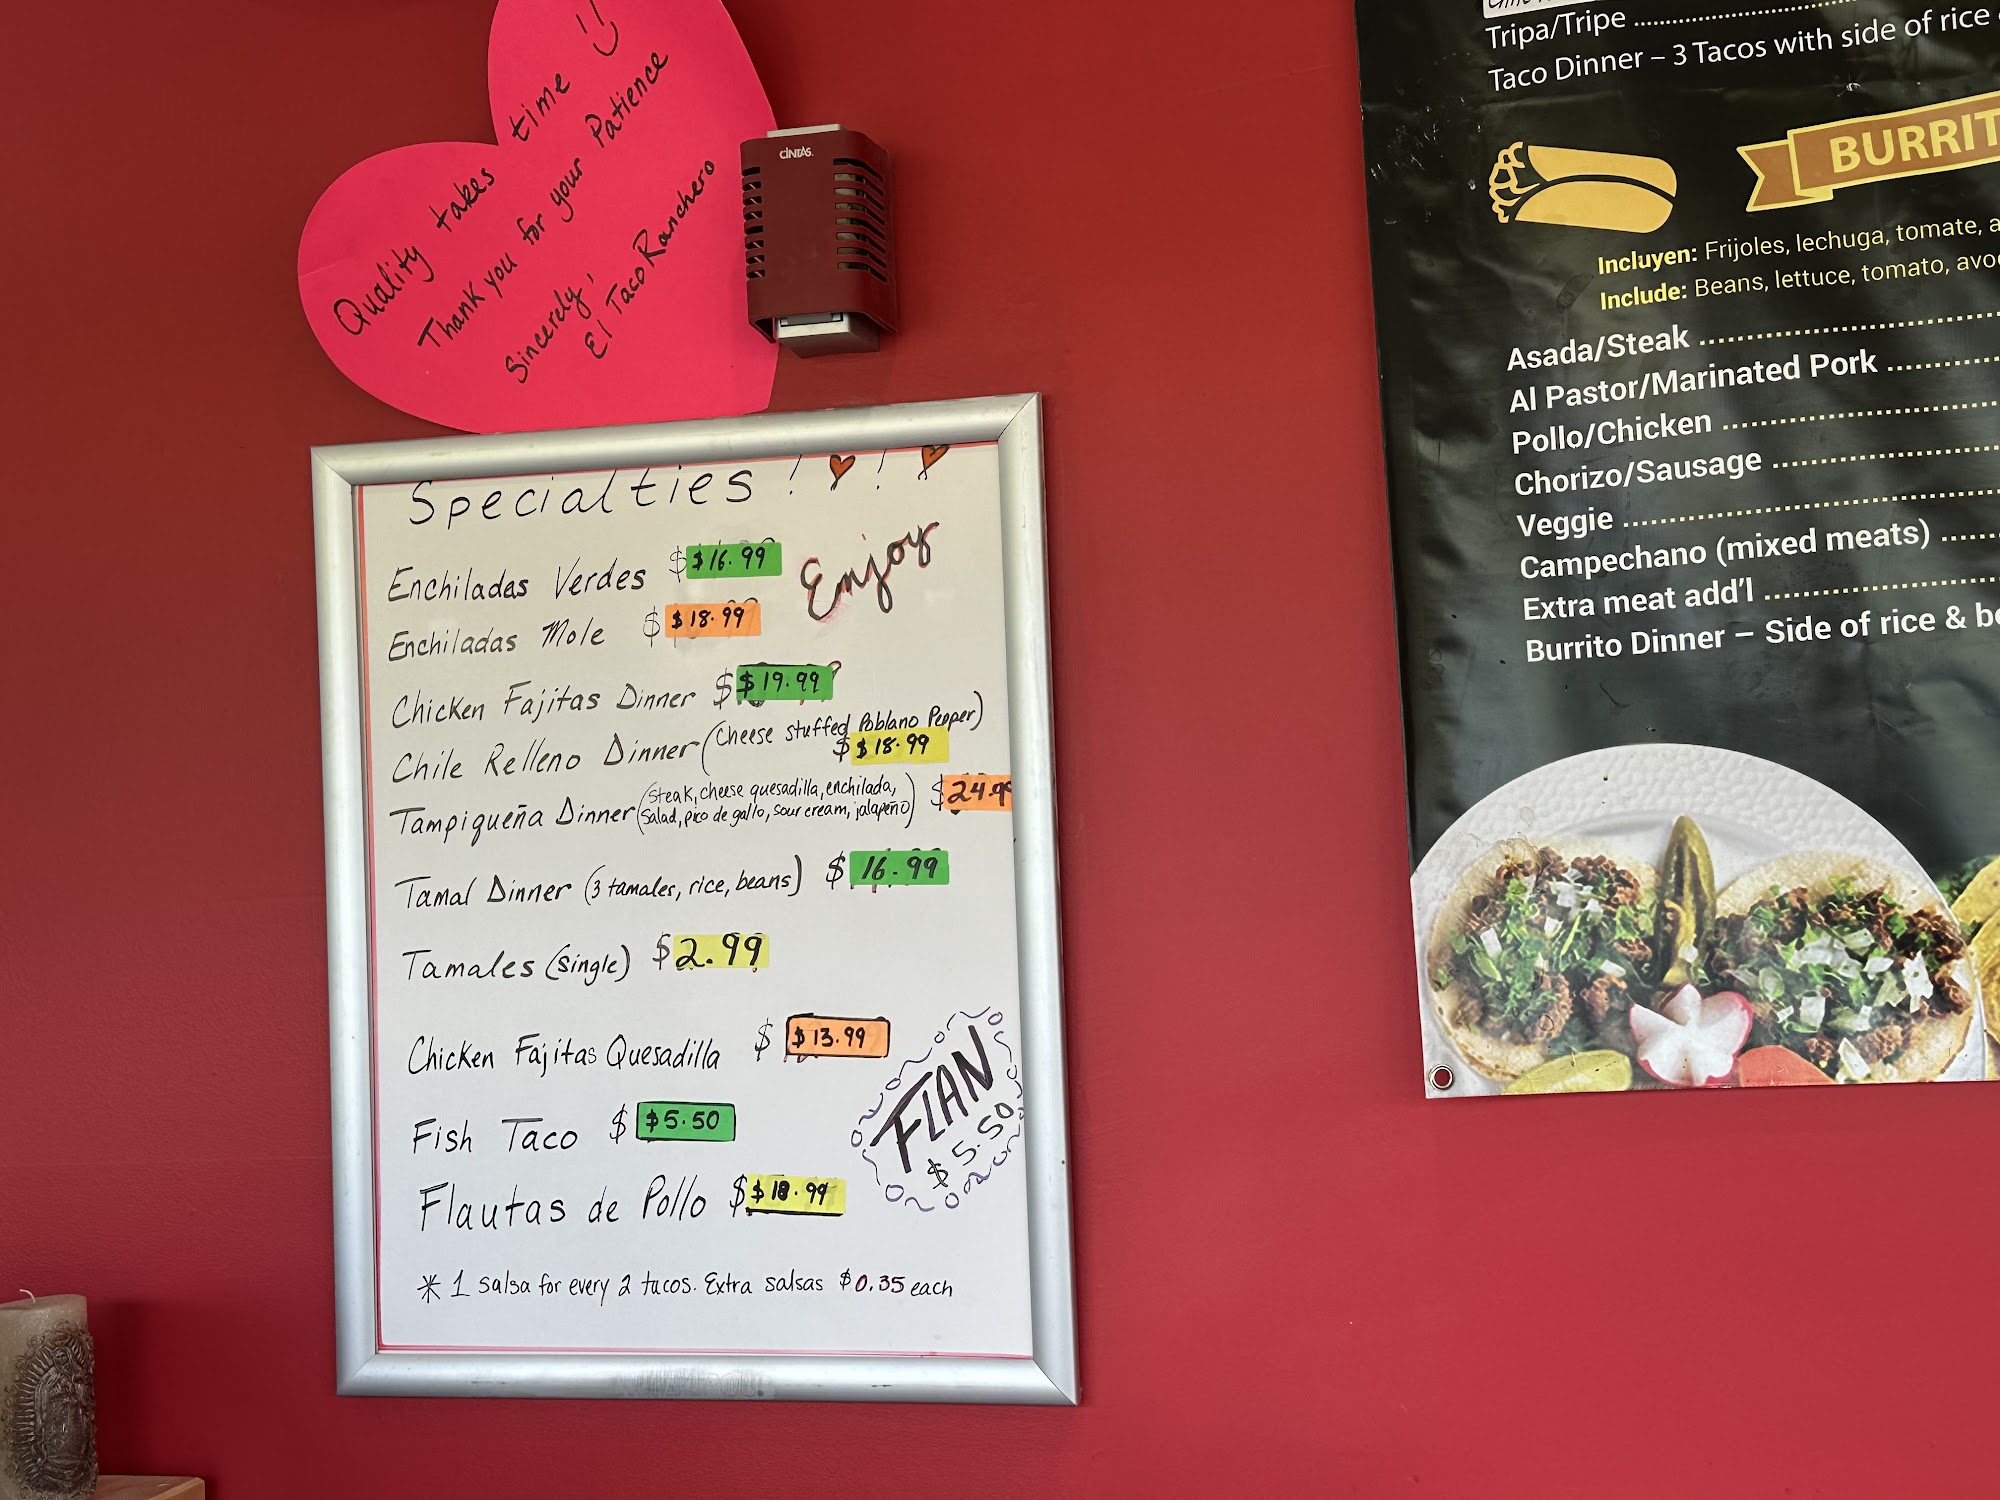 Quality takes time
Thank you for your Patience
Sincerely,
El Taco Ranchero
CINTAS
Specialties ! !
Enjoy
Enchiladas Verdes $ $16.99
Enchiladas Mole $ $18.99
Chicken Fajitas Dinner $ $19.99
Chile Relleno Dinner (Cheese stuffed Poblano Pepper)
$ $18.99
Tampiqueña Dinner (Steak, cheese quesadilla, enchilada,
Salad, pico de gallo, sour cream, jalapeño) $ 24.99
Tamal Dinner (3 tamales, rice, beans) $ 16.99
Tamales (single) $2.99
Chicken Fajitas Quesadilla $ $13.99
Fish Taco $ $5.50
Flautas de Pollo $ $18.99
FLAN
$5.50
* 1 salsa for every 2 tacos. Extra salsas $0.35 each
Tripa/Tripe
Taco Dinner – 3 Tacos with side of rice
BURRIT
Incluyen: Frijoles, lechuga, tomate, a
Include: Beans, lettuce, tomato, avo
Asada/Steak
Al Pastor/Marinated Pork
Pollo/Chicken
Chorizo/Sausage
Veggie
Campechano (mixed meats)
Extra meat add'l
Burrito Dinner – Side of rice & be